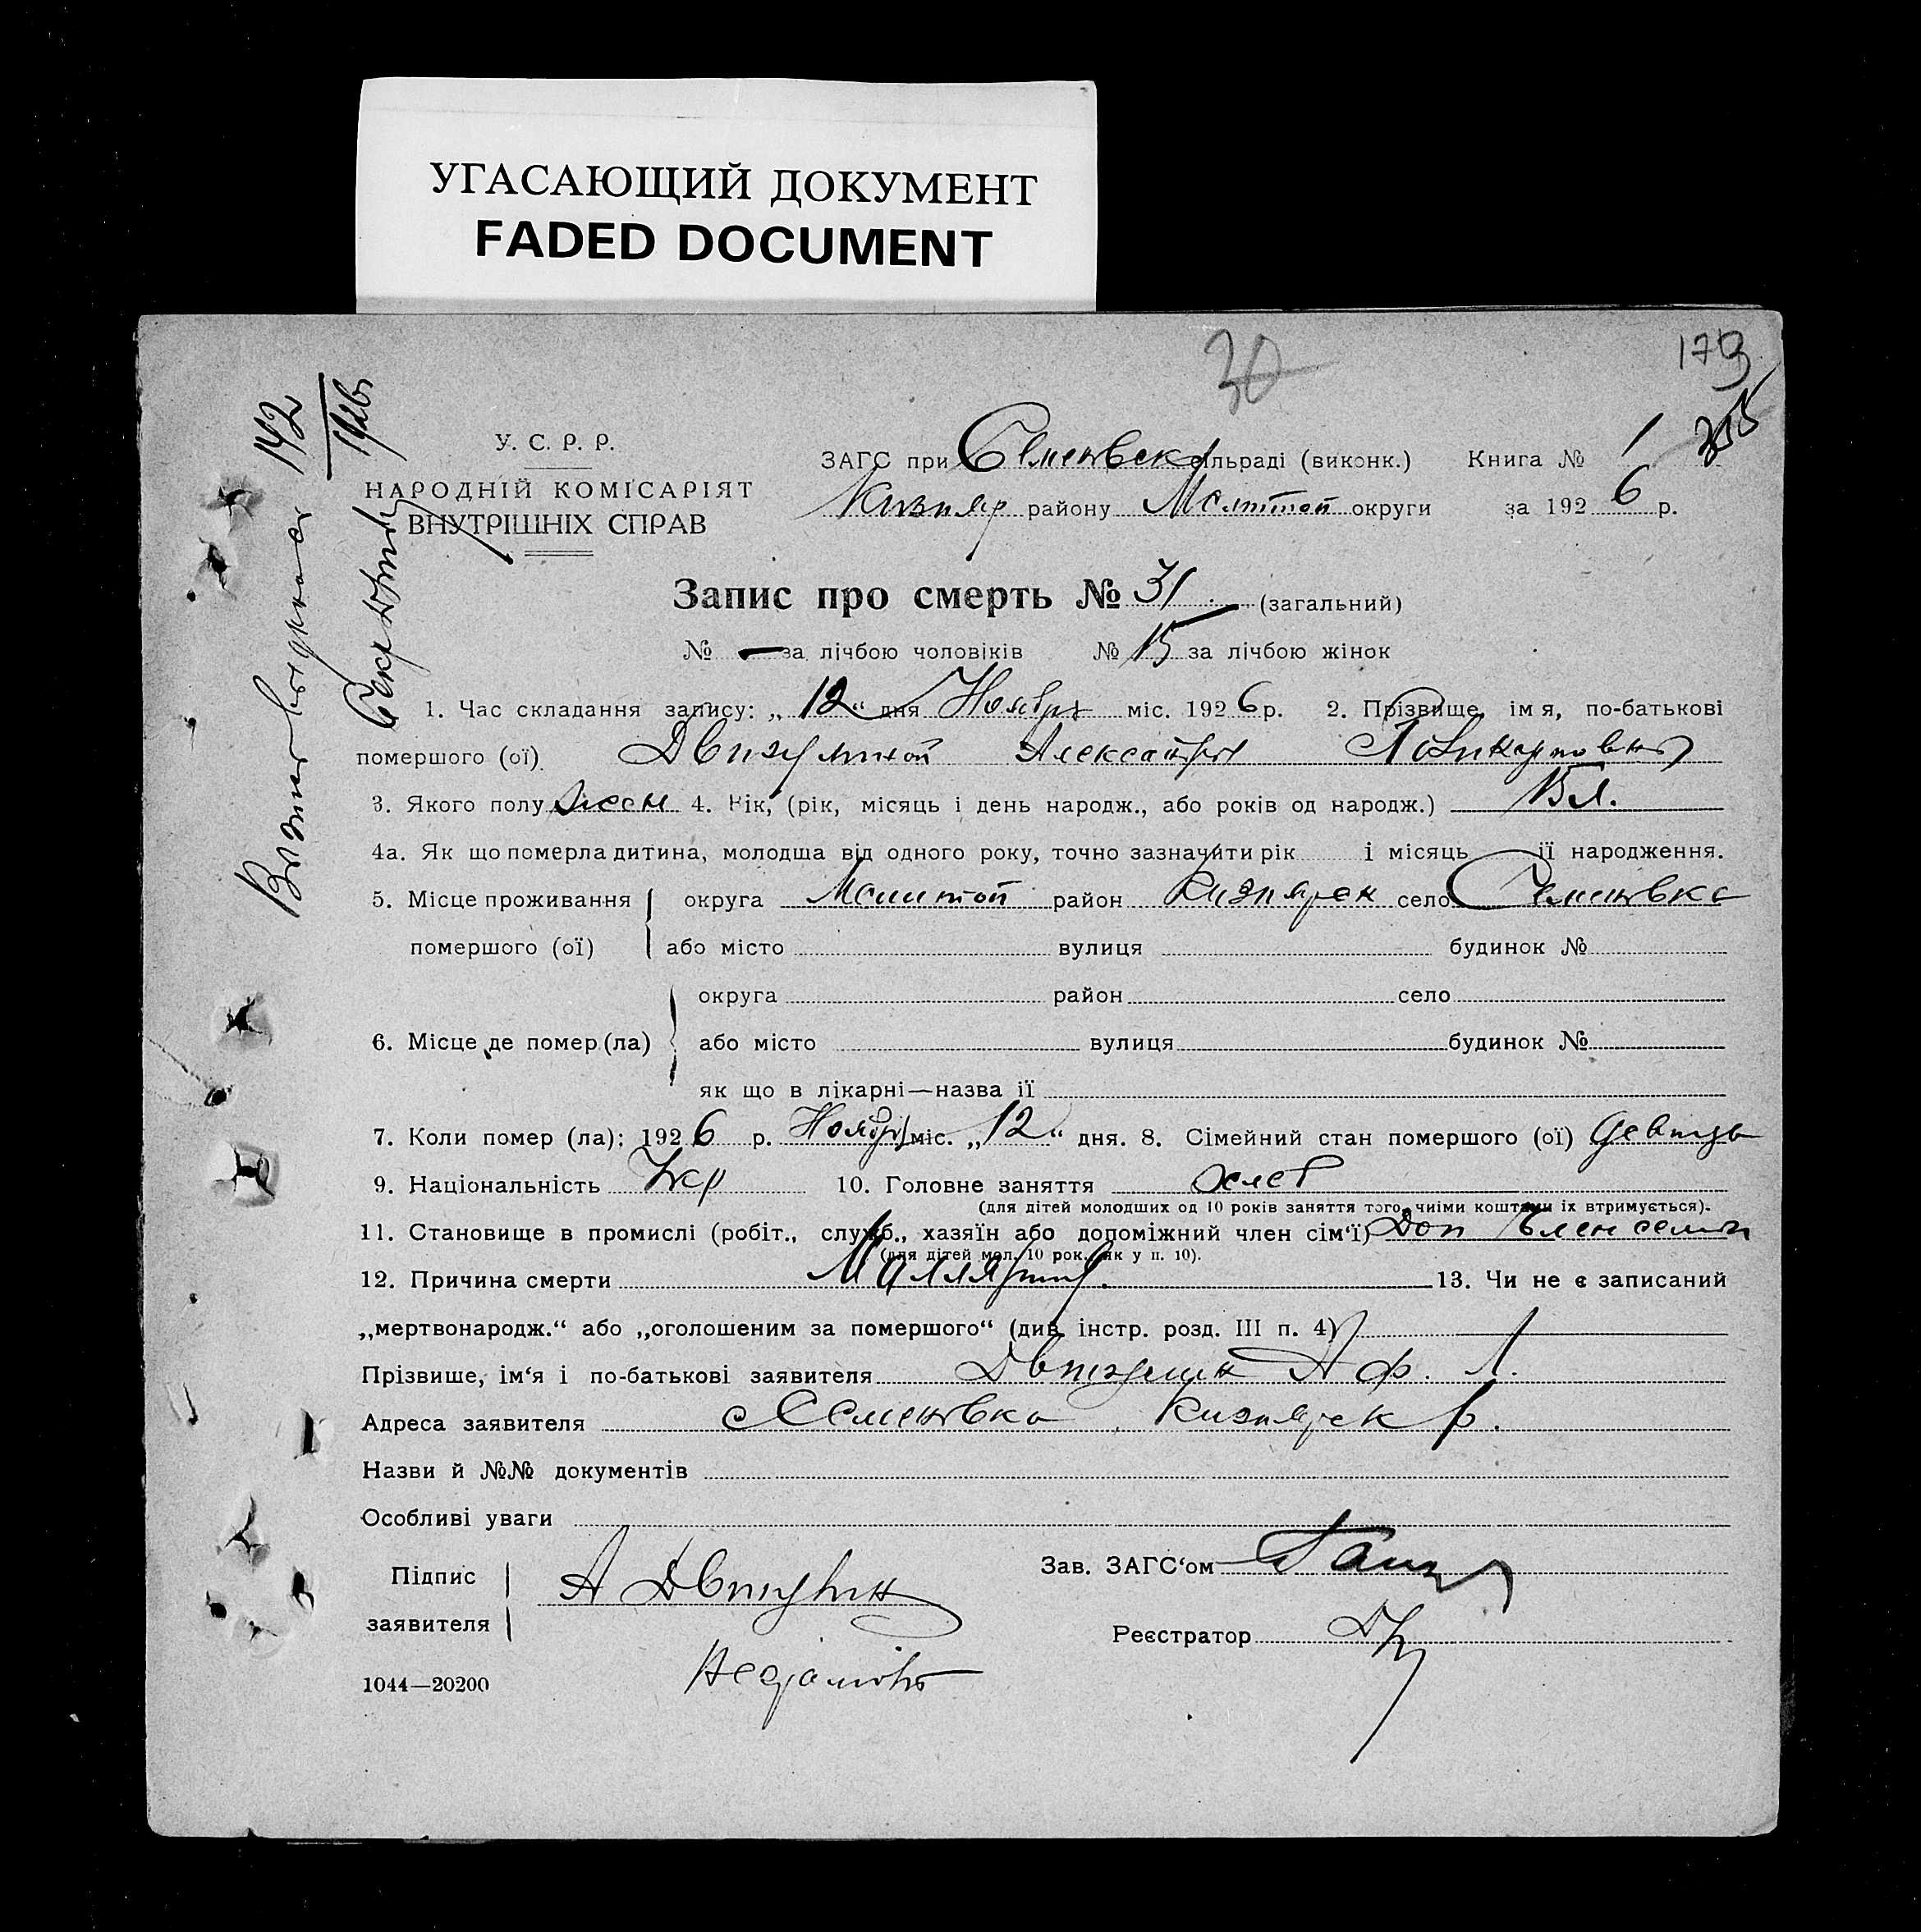 УГАСАЮЩИЙ ДОКУМЕНТ
FADED DOCUMENT
30
173
142
1926
У. С. Р. Р.
НАРОДНІЙ КОМІСАРІЯТ
ВНУТРІШНІХ СПРАВ
ЗАГС при Семеновск сільраді (виконк.) Книга № 1
Кизияр району Мелітоп округи за 1926 р.
Запис про смерть № 31. (загальний)
№ — за лічбою чоловіків № 15 за лічбою жінок
1. Час складання запису: „12“ дня Ноября міс. 1926 р. 2. Прізвище, ім я, по-батькові
помершого (ої) Александры Поликарповны
3. Якого полу жен 4. Вік, (рік, місяць і день народж., або років од народж.)
4а. Як що померла дитина, молодша від одного року, точно зазначити рік і місяць її народження.
5. Місце проживання помершого (ої) округа Мелитоп район Кизиярск село Семеновка
або місто вулиця будинок №
6. Місце де помер (ла) округа район село
або місто вулиця будинок №
як що в лікарні—назва її
7. Коли помер (ла): 1926 р. Ноября міс. „12“ дня. 8. Сімейний стан помершого (ої) девица
9. Національність Укр 10. Головне заняття хлеб
(для дітей молодших од 10 років заняття того, чиїми коштами їх втримується).
11. Становище в промислі (робіт., служб., хазяїн або допоміжний член сім‘ї) Доп Член семьи
(для дітей мол. 10 рок. як у п. 10).
12. Причина смерти Малярия. 13. Чи не є записаний
„мертвонародж.“ або „оголошеним за помершого“ (див. інстр. розд. III п. 4)
Прізвише, ім‘я і по-батькові заявителя Аф. Л.
Адреса заявителя с Семеновка, Кизиярск р.
Назви й №№ документів
Особливі уваги
Підпис заявителя А
Зав. ЗАГС‘ом
Реєстратор
1044—20200